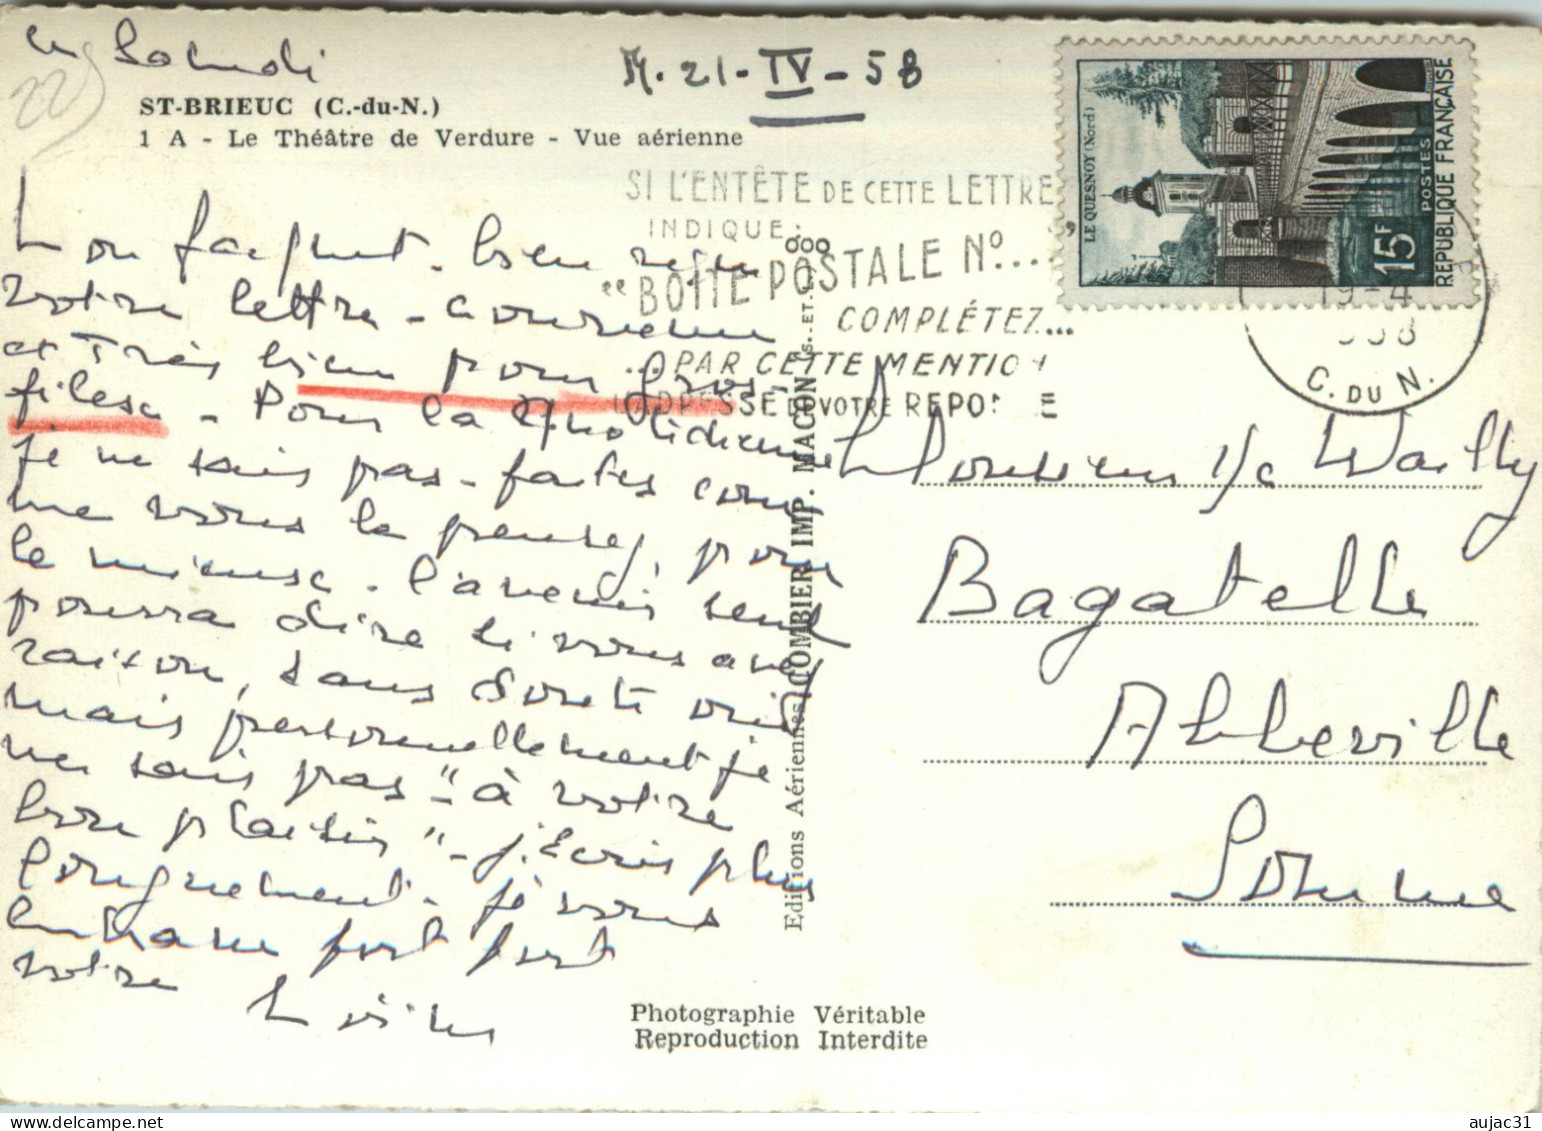 ce Samedi
M. 21-IV-58
22
ST-BRIEUC (C.-du-N.)
1 A - Le Théâtre de Verdure - Vue aérienne
SI L'ENTÊTE DE CETTE LETTRE
INDIQUE:
"BOITE POSTALE N°..."
COMPLÉTEZ...
...PAR CETTE MENTION
L'ADRESSE DE VOTRE REPONSE
LE QUESNOY (Nord)
15F
POSTES
REPUBLIQUE FRANÇAISE
19-4
C. DU N.
Mon Jacquot. bien reçu
votre lettre - convenu
et Très bien pour Gros,
filesc - Pour la Quotidienne
je ne sais pas - faites com
me vous le pensez, pour
le mieux - l'avenir seul
pourra dire si vous avez
raison, sans doute oui,
mais personnellement je
ne sais pas - "à votre
bon plaisir" - j'écris plus
longuement - je vous
embrasse fort fort
votre
Monsieur Wailly
Bagatelle
Abbeville
Somme
Editions Aériennes COMBIER IMP. MACON (S.-ET-L.)
Photographie Véritable
Reproduction Interdite
aujac31